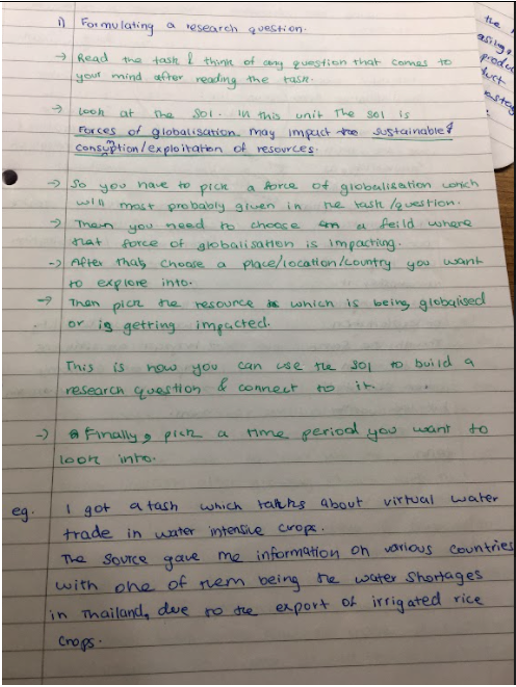 i) Formulating a research question.
→ Read the task & think of any question that comes to
your mind after reading the task.
→ Look at the SOI. In this unit The SOI is
Forces of globalisation may impact sustainable
consumption/exploitation of resources.
→ So you have to pick a force of globalisation which
will most probably given in the task/question.
→ Then you need to choose a feild where
that force of globalisation is impacting.
→ After that, choose a place/location/country you want
to explore into.
→ Then pick the resource which is being globalised
or is getting impacted.
This is how you can use the SOI to build a
research question & connect to it.
→ Finally, pick a time period you want to
look into.
eg. I got a task which talks about virtual water
trade in water intensive crops.
The source gave me information on various countries
with one of them being the water shortages
in Thailand, due to the export of irrigated rice
crops.
the